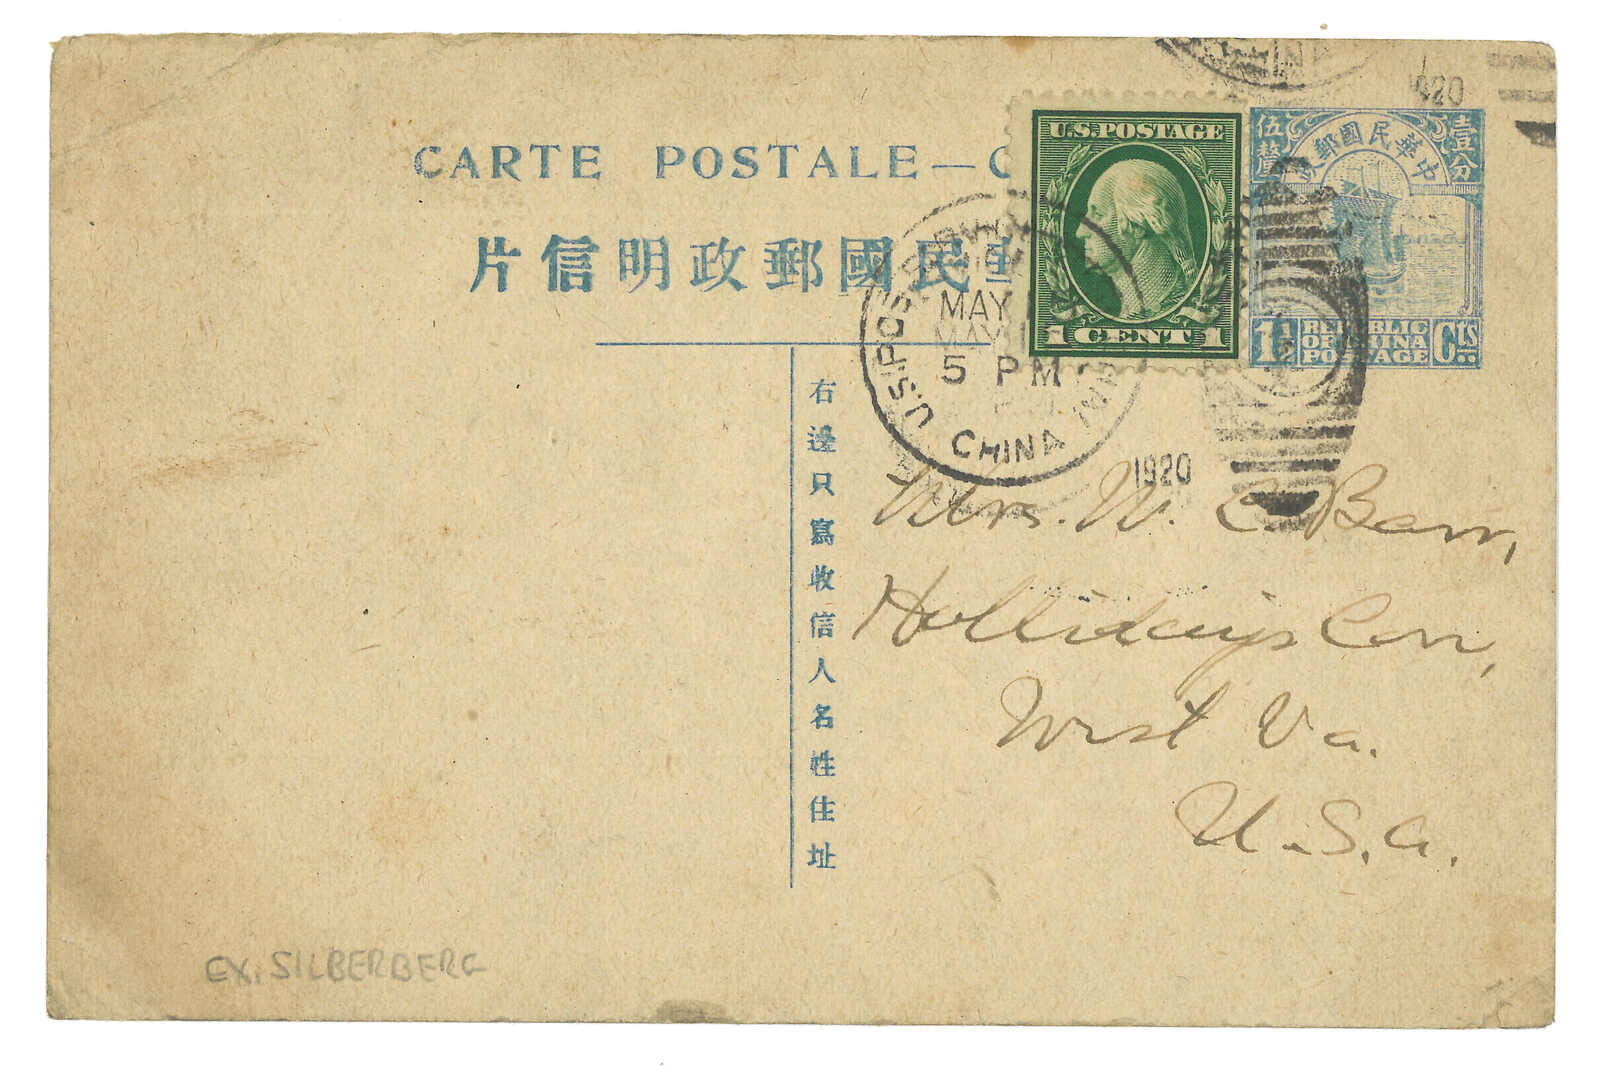 CARTE POSTALE — C
片信明政郵國民
U.S. POSTAGE
1 CENT 1
中華民國郵政
壹分
伍釐
1½ REPUBLIC OF CHINA POSTAGE Cts
MAY
MAY
5 PM
CHINA
1920
1920
右邊只寫收信人名姓住址
Mrs. W. C. Barr,
Hollidays Cor,
West Va.
U.S.A.
EX. SILBERBERG